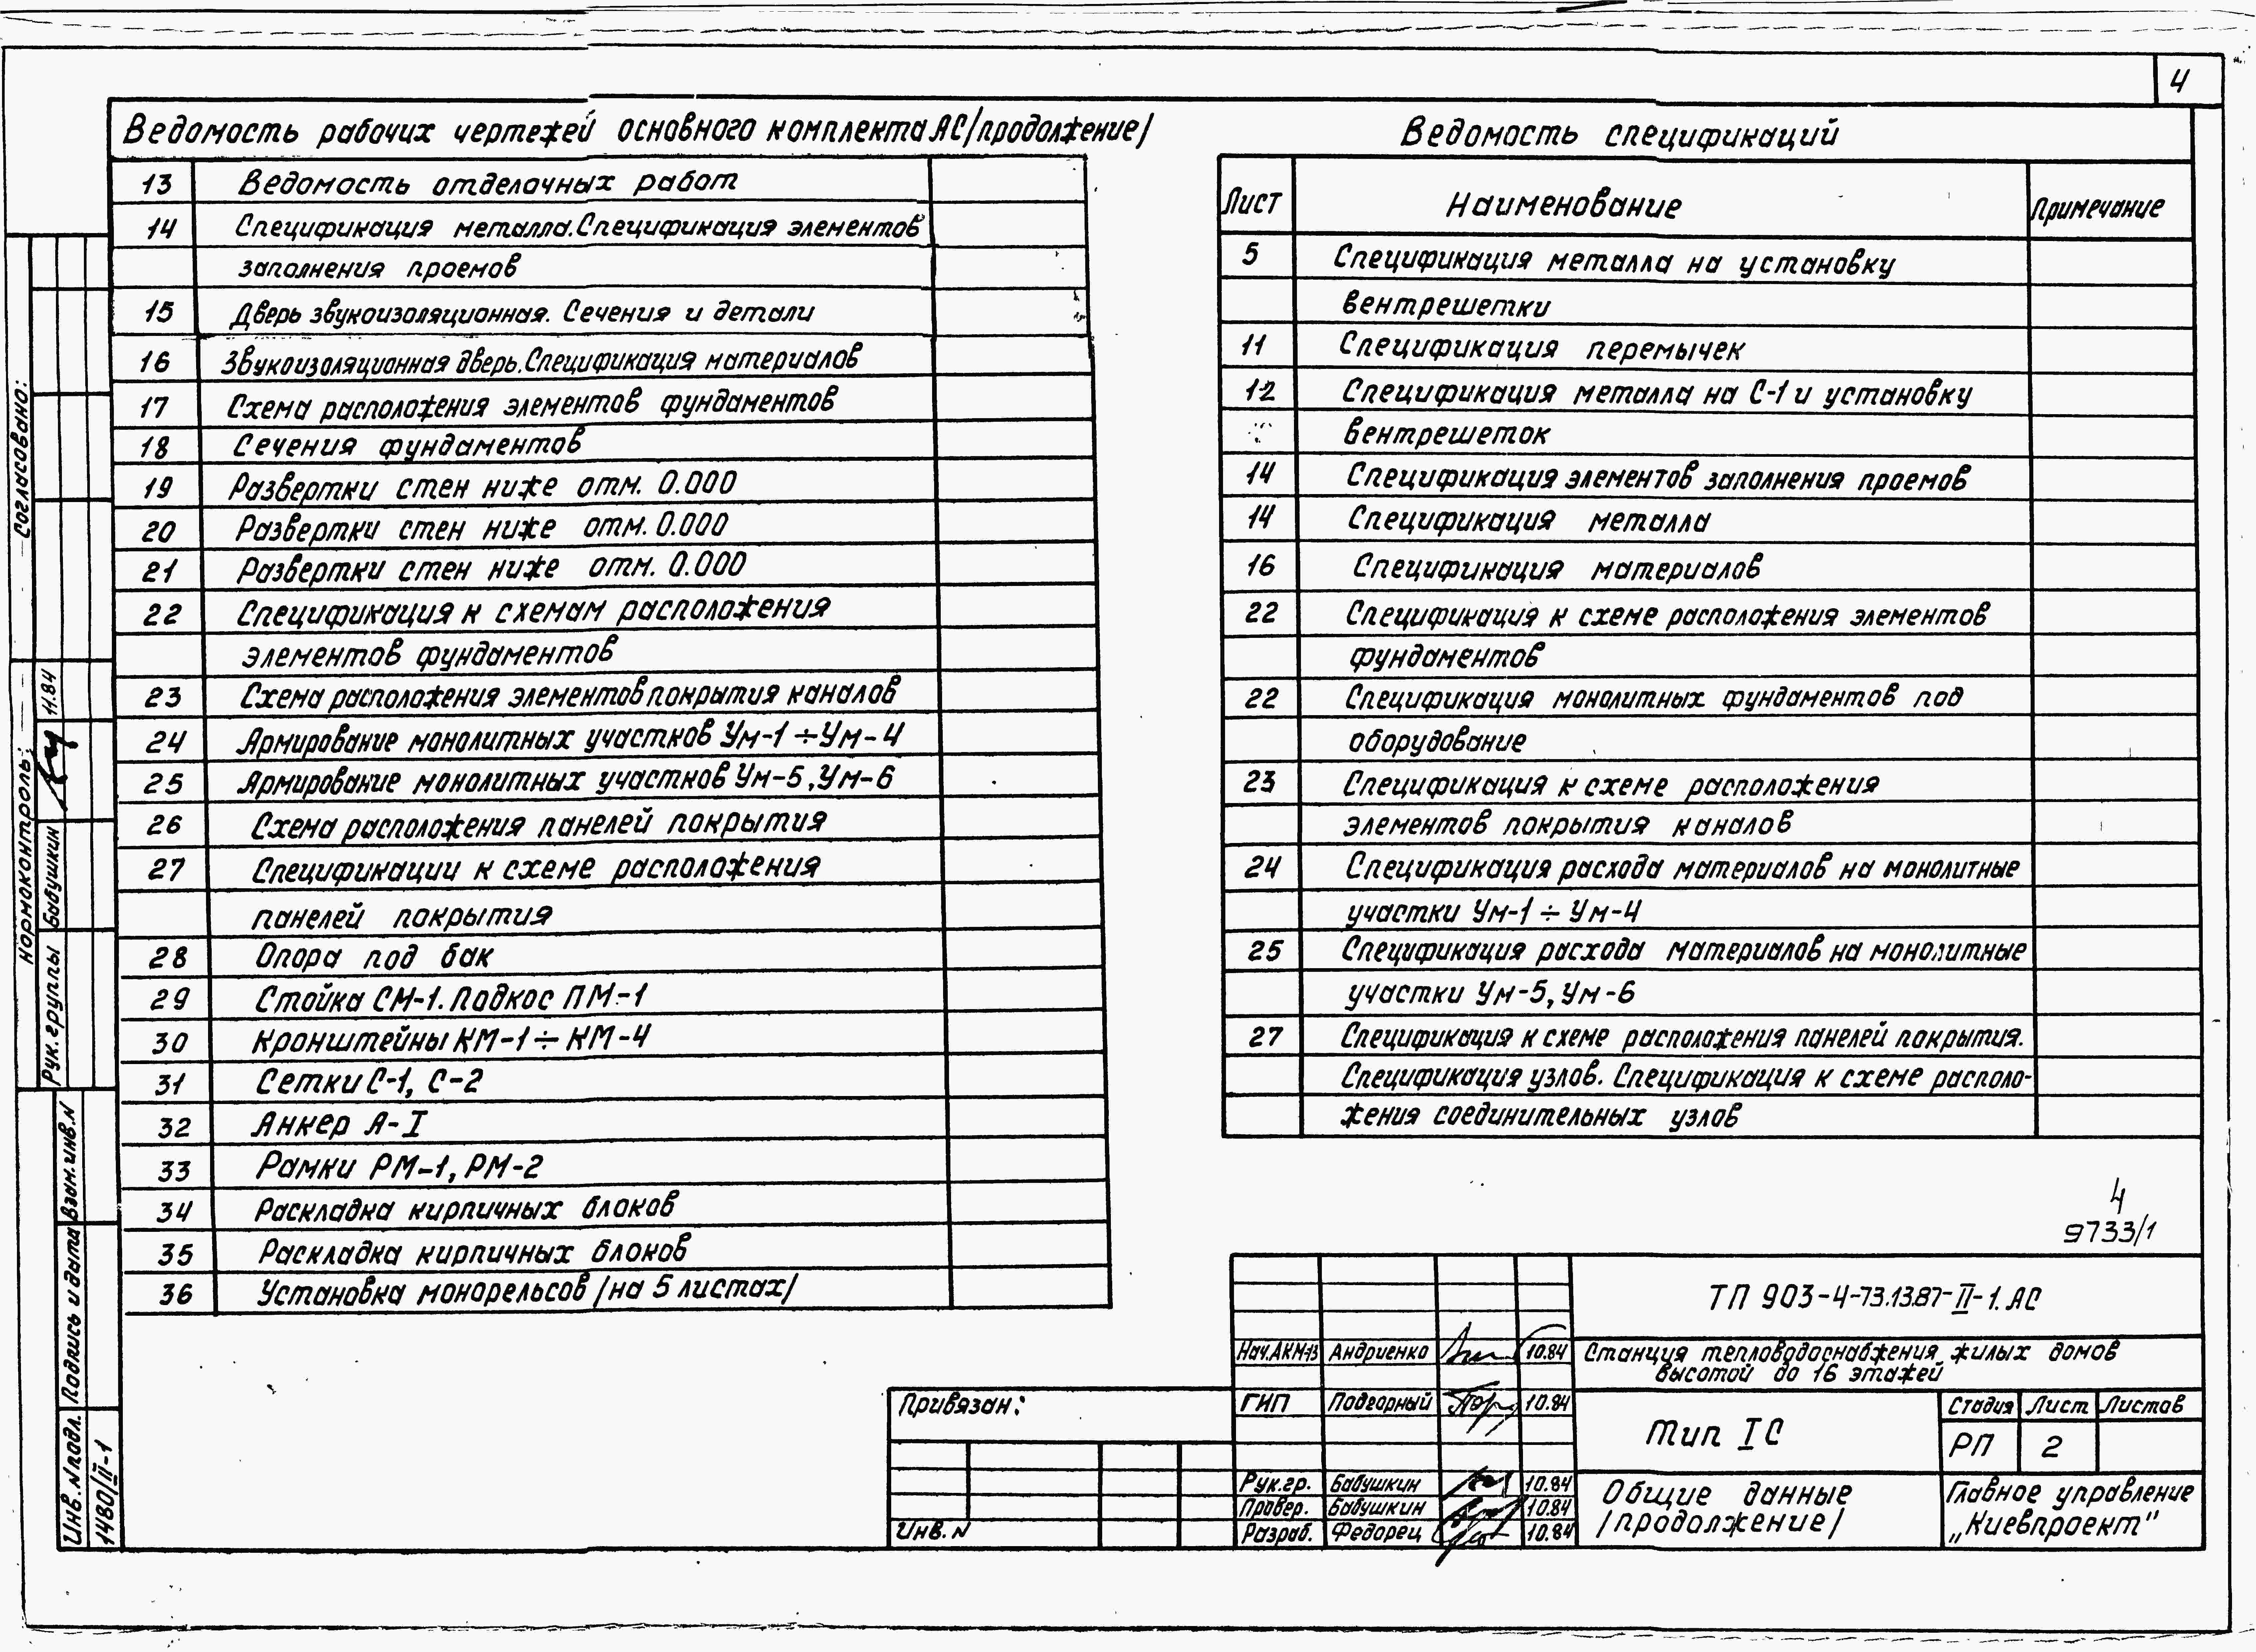 4
Ведомость рабочих чертежей основного комплекта АС/продолжение/
13 Ведомость отделочных работ
14 Спецификация металла. Спецификация элементов
заполнения проемов
15 Дверь звукоизоляционная. Сечения и детали
16 Звукоизоляционная дверь. Спецификация материалов
17 Схема расположения элементов фундаментов
18 Сечения фундаментов
19 Развертки стен ниже отм. 0.000
20 Развертки стен ниже отм. 0.000
21 Развертки стен ниже отм. 0.000
22 Спецификация к схемам расположения
элементов фундаментов
23 Схема расположения элементов покрытия каналов
24 Армирование монолитных участков Ум-1÷Ум-4
25 Армирование монолитных участков Ум-5, Ум-6
26 Схема расположения панелей покрытия
27 Спецификации к схеме расположения
панелей покрытия
28 Опора под бак
29 Стойка СМ-1. Подкос ПМ-1
30 Кронштейны КМ-1÷КМ-4
31 Сетки С-1, С-2
32 Анкер А-I
33 Рамки РМ-1, РМ-2
34 Раскладка кирпичных блоков
35 Раскладка кирпичных блоков
36 Установка монорельсов /на 5 листах/
Ведомость спецификаций
Лист Наименование Примечание
5 Спецификация металла на установку
вентрешетки
11 Спецификация перемычек
12 Спецификация металла на С-1 и установку
вентрешеток
14 Спецификация элементов заполнения проемов
14 Спецификация металла
16 Спецификация материалов
22 Спецификация к схеме расположения элементов
фундаментов
22 Спецификация монолитных фундаментов под
оборудование
23 Спецификация к схеме расположения
элементов покрытия каналов
24 Спецификация расхода материалов на монолитные
участки Ум-1÷Ум-4
25 Спецификация расхода материалов на монолитные
участки Ум-5, Ум-6
27 Спецификация к схеме расположения панелей покрытия.
Спецификация узлов. Спецификация к схеме располо-
жения соединительных узлов
4
9733/1
ТП 903-4-73.13.87-II-1.АС
Нач.АКМ-13 Андриенко 10.84
Станция тепловодоснабжения жилых домов
высотой до 16 этажей
ГИП Подгорный 10.84
Тип IС
Стадия Лист Листов
РП 2
Рук.гр. Бабушкин 10.84
Провер. Бабушкин 10.84
Разраб. Федорец 10.84
Общие данные
/продолжение/
Главное управление
„Киевпроект"
Привязан:
Инв.N
Согласовано:
Нормоконтроль:
Рук.группы Бабушкин 11.84
Взам.инв.N
Подпись и дата
Инв.N подл.
1480/II-1